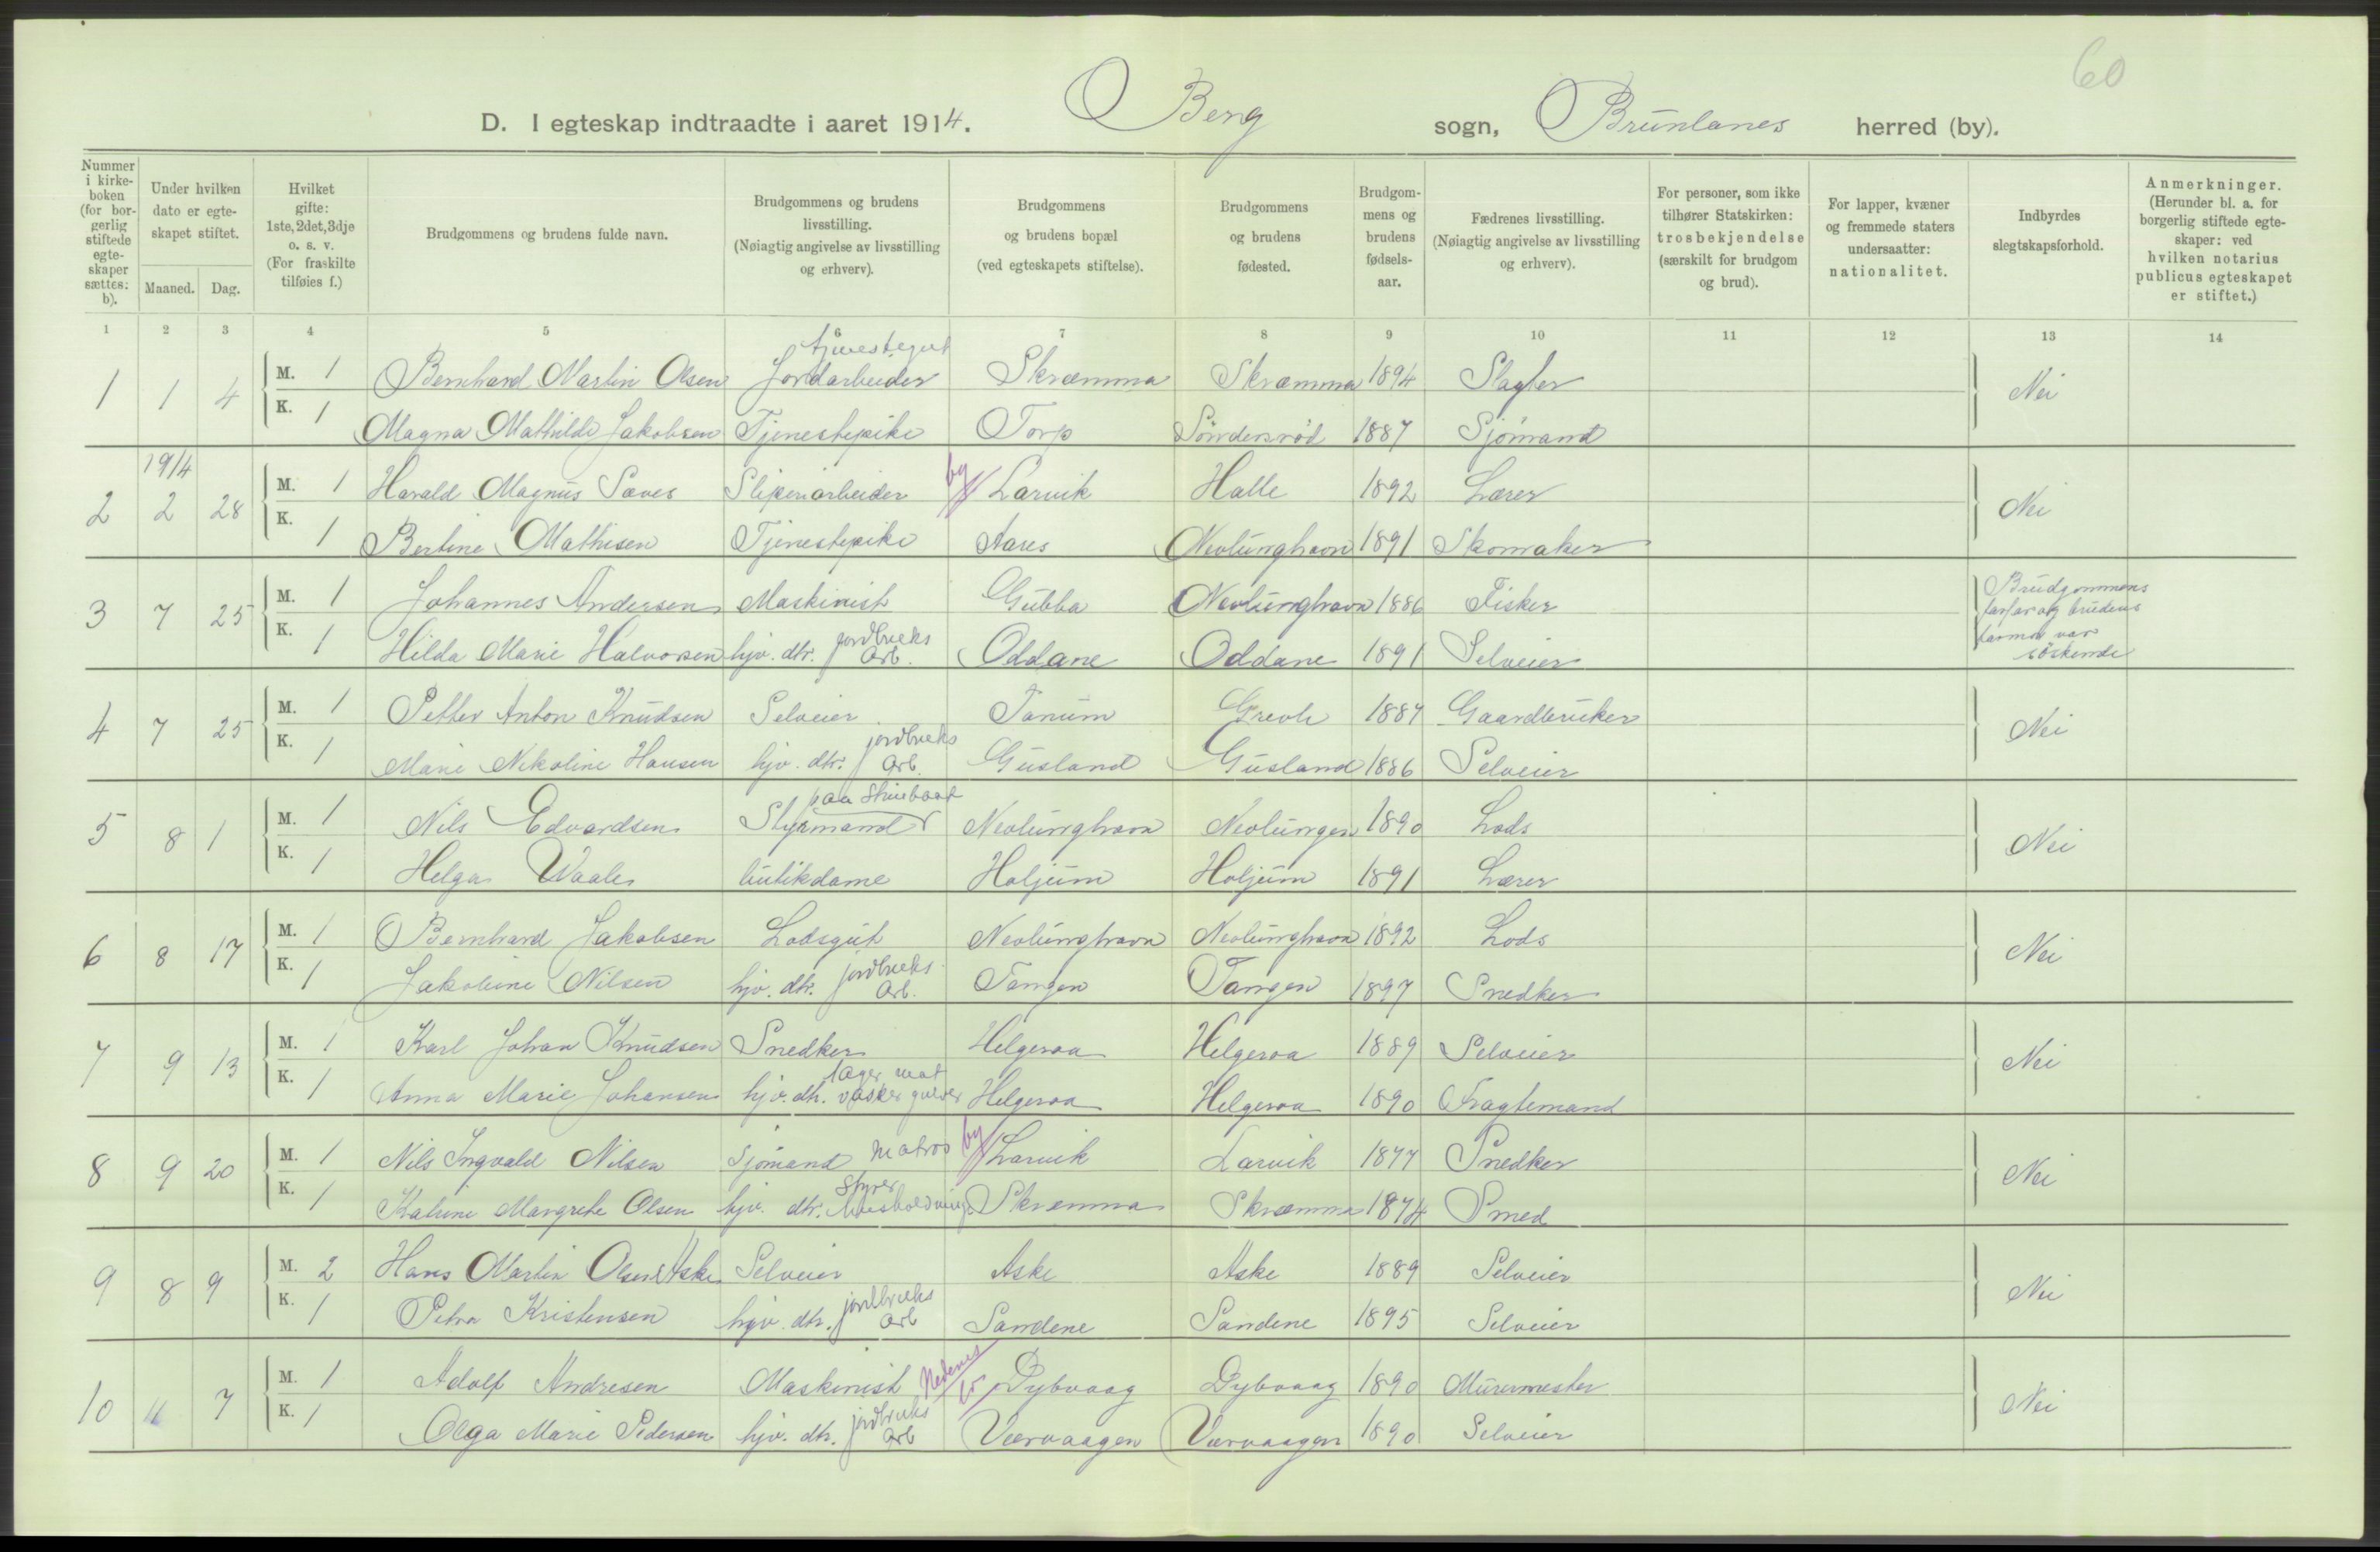 60
D. I egteskap indtraadte i aaret 1914. Berg sogn, Brunlanes herred (by).
Nummer i kirkeboken (for borgerlig stiftede egteskaper sættes: b).
Under hvilken dato er egteskapet stiftet.
Maaned. Dag.
Hvilket gifte: 1ste, 2det, 3dje o. s. v. (For fraskilte tilføies f.)
Brudgommens og brudens fulde navn.
Brudgommens og brudens livsstilling. (Nøiagtig angivelse av livsstilling og erhverv).
Brudgommens og brudens bopæl (ved egteskapets stiftelse).
Brudgommens og brudens fødested.
Brudgommens og brudens fødselsaar.
Fædrenes livsstilling. (Nøiagtig angivelse av livsstilling og erhverv).
For personer, som ikke tilhører Statskirken: trosbekjendelse (særskilt for brudgom og brud).
For lapper, kvæner og fremmede staters undersaatter: nationalitet.
Indbyrdes slegtskapsforhold.
Anmerkninger. (Herunder bl. a. for borgerlig stiftede egteskaper: ved hvilken notarius publicus egteskapet er stiftet.)
1 2 3 4 5 6 7 8 9 10 11 12 13 14
tjenestegut
1 1 4 M. 1 Bernhard Martin Olsen Jordarbeider Skræmma Skræmma 1894 Slagter Nei
K. 1 Magna Mathilde Jakobsen Tjenestepike Torp Söndersröd 1887 Sjömand
1914
2 2 28 M. 1 Harald Magnus Saves Sliperiarbeider by Larvik Halle 1892 Lærer Nei
K. 1 Bertine Mathisen Tjenestepike Aares Nevlunghavn 1891 Skomaker
3 7 25 M. 1 Johannes Andersen Maskinist Gubba Nevlunghavn 1886 Fisker Brudgommens farfar og brudens farmor var söskende
K. 1 Hilda Marie Halvorsen hjv. dtr. jordbruks arb. Oddane Oddane 1891 Selveier
4 7 25 M. 1 Petter Anton Knudsen Selveier Tanum Grevle 1887 Gaardbruker Nei
K. 1 Marie Nikoline Hansen hjv. dtr. jordbruks arb. Gusland Gusland 1886 Selveier
5 8 1 M. 1 Nils Edvardsen Styrmand Nevlunghavn Nevlungen 1890 Lods Nei
K. 1 Helga Waale butikdame Holjum Holjum 1891 Lærer
6 8 17 M. 1 Bernhard Jakobsen Lodsgut Nevlunghavn Nevlunghavn 1892 Lods Nei
K. 1 Jakobine Nilsen hjv. dtr. jordbruks arb. Tangen Tangen 1897 Snedker
7 9 13 M. 1 Karl Johan Knudsen Snedker Helgeroa Helgeroa 1889 Selveier Nei
K. 1 Anna Marie Johansen hjv. dtr. lager mat vasker gulver Helgeroa Helgeroa 1890 Fragtemand
8 9 20 M. 1 Nils Ingvald Nilsen Sjömand Matros by Larvik Larvik 1877 Snedker Nei
K. 1 Katrine Margrethe Olsen hjv. dtr. Styrer husholdning Skræmma Skræmma 1874 Smed
9 8 9 M. 2 Hans Martin Olsen Aske Selveier Aske Aske 1889 Selveier Nei
K. 1 Petra Kristensen hjv. dtr. jordbruks arb Sandene Sandene 1895 Selveier
10 7 M. 1 Adolf Andresen Maskinist Nedenes Dybvaag Dybvaag 1890 Murermester Nei
K. 1 Olga Marie Pedersen hjv. dtr. jordbruks arb Værvaagen Værvaagen 1890 Selveier